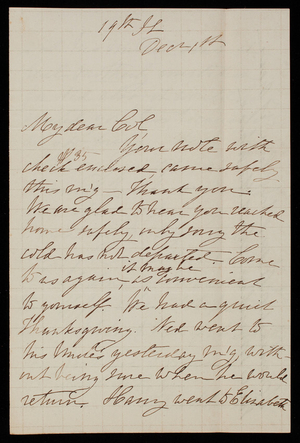 19th St
Dec 1st
My dear Col,
Your note with
$35
check enclosed, came safely
this m'g — Thank you.
We are glad to hear you reached
home safely, only sorry the
cold has not departed. Come
it may be
to us again, is convenient
to yourself. We had a quiet
Thanksgiving. Ned went to
his Uncles yesterday m'g with
out being sure when he would
return. Harry went to Elizabeth